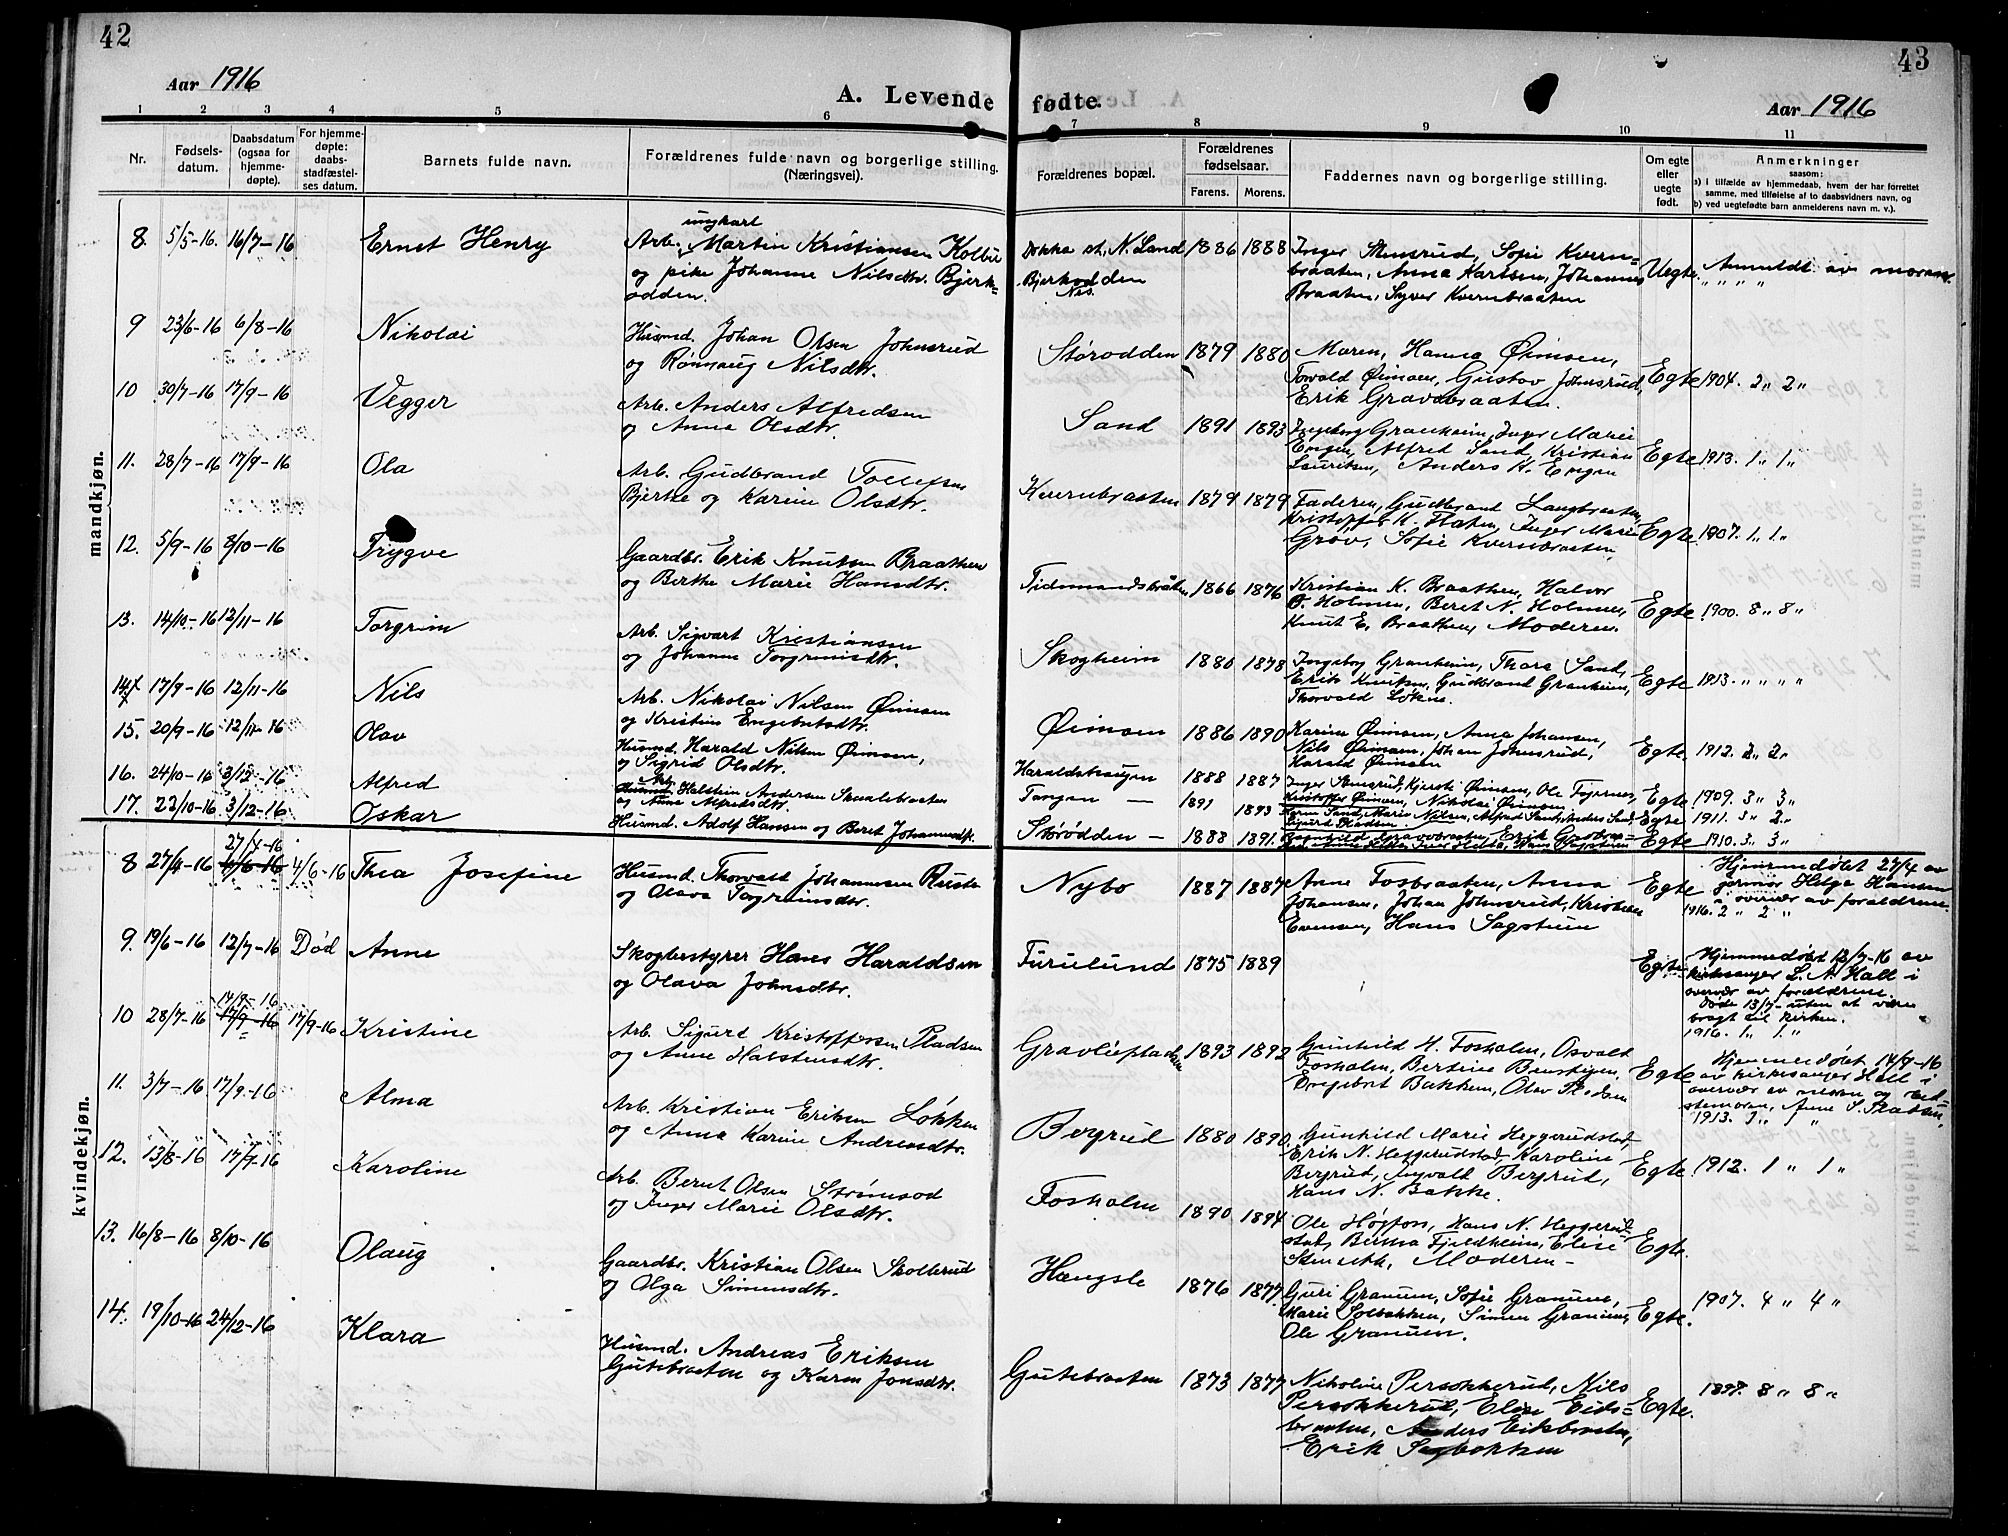 42
Aar 1916
A. Levende
1 2 3 4 5 6
Nr.
Fødsels-
datum.
Daabsdatum
(ogsaa for
hjemme-
døpte).
For hjemme-
døpte:
daabs-
stadfæstel-
ses datum.
Barnets fulde navn.
Forældrenes fulde navn og borgerlige stilling.
(Næringsvei).
mandkjøn.
8. 5/5-16. 16/7-16 Ernst Henry
ungkarl
Arb. Martin Kristiansen Kolbu
og pike Johanne Nilsdtr. Bjerk=
odden.
9 23/6-16 6/8-16 Nikolai
Husmd. Johan Olsen Johnsrud
og Rønnaug Nilsdtr.
10 30/7-16 17/9-16 Vegger
Arb. Anders Alfredsen
og Anna Olsdtr.
11. 28/7-16 17/9-16 Ola
Arb. Gudbrand Tollefsen
Bjerke og Karine Olsdtr.
12. 5/9-16 8/10-16 Trygve
Gaardbr. Erik Knutsen Braathen
og Berthe Marie Hansdtr.
13. 14/10-16 12/11-16 Torgrim
Arb. Sigvart Kristiansen
og Johanne Torgrimsdtr.
14. 17/9-16 12/11-16 Nils
Arb. Nikolai Nilsen Øimoen
og Kristine Engebretsdtr.
15. 20/9-16 12/11-16 Olav
Husmd. Harald Nilsen Øimoen,
og Sigrid Olsdtr.
16. 24/10-16 3/12-16 Alfred
Arb. Halstein Andersen Skaalebraaten
og Anne Alfredsdtr.
17. 22/10-16 3/12-16 Oskar
Husmd. Adolf Hansen og Beret Johannesdtr.
kvindekjøn.
27/4-16
8 27/4-16 4/6-16 4/6-16 Thea Josefine
Husmd. Thorvald Johannesen Ruste
og Olava Torgrimsdtr.
9. 19/6-16 12/7-16 Død Anne
Skogbestyrer Hans Haraldsen
og Olava Johnsdtr.
14/9-16
10 28/7-16 17/9-16 17/9-16 Kristine
Arb. Sigurd Kristoffersen Pladsen
og Anne Halstensdtr.
11. 3/7-16 17/9-16 Alma
Arb. Kristian Eriksen Løkken
og Anna Karine Andreasdtr.
12. 13/8-16 17/9-16 Karoline
Arb. Bernt Olsen Strømsod
og Inger Marie Olsdtr.
13. 16/8-16 8/10-16 Olaug
Gaardbr. Kristian Olsen Skollerud
og Olga Simensdtr.
14. 19/10-16 24/12-16 Klara
Husmd. Andreas Eriksen
Gutebraaten og Karen Jonsdtr.
43
fødte.
Aar 1916
7 8 9 10 11
Forældrenes bopæl.
Forældrenes
fødselsaar.
Farens. Morens.
Faddernes navn og borgerlige stilling.
Om egte
eller
uegte
født.
Anmerkninger
saasom:
a) i tilfælde av hjemmedaab, hvem der har forrettet
samme, med tilføielse af to daabsvidners navn, og
b) ved uegtefødte barn anmelderens navn m. v.).
Dokka st., N. Land 1886 1888
Bjerkodden
Nes.
Inger Stensrud, Sofie Kvern=
braaten, Anna Karlsen, Johannes
Braaten, Syver Kvernbraaten
Uegte. Anmeldt av moren.
Størodden 1879 1880
Maren, Hanna Øimoen,
Torvald Øimoen, Gustav Johnsrud,
Erik Gravabraaten.
Egte 1904. 2 " 2 "
Sand 1891 1893
Ingeborg Granheim, Inger Marie
Engen, Alfred Sand, Kristian
Lauritsen, Anders K. Engen
Egte 1913. 1 " 1 "
Kvernbraaten 1879 1879
Faderen, Gudbrand Langbraaten,
Kristoffer K. Flaten, Inger Marie
Grøv, Sofie Kvernbraaten,
Egte. 1907. 1 " 1 "
Tidemandsbråten 1866 1876
Kristian K. Braathen, Halvor
O. Holmen, Beret N. Holmen,
Knut E. Braathen, Moderen.
Egte 1900. 8 " 8 "
Skogheim 1880 1878
Ingeborg Granheim, Thora Sand,
Erik Knutsen, Gudbrand Granheim,
Thorvald Løken.
Egte 1913. " " " "
Øimoen 1886 1890
Karine Øimoen, Anna Johansen,
Nils Øimoen, Johan Johnsrud,
Harald Øimoen
Egte. 1912. 2 " 2 "
Haraldshaugen 1888 1887
Inger Stensrud, Kjersti Øimoen, Ole Tajernes,
Kristoffer Øimoen, Nikolai Øimoen.
Egte 1909. 3 " 3 "
Tangen - 1891 1893
Karen Sand, Marie Nilsen, Alfred Sand, Anders Sand,
Sigurd Pladsen.
Egte 1911. 3 " 2 "
Størødden - 1888 1891.
Egte 1910. 3 " 3 "
Nybo 1887 1887
Anne Fosbraaten, Anna
Johansen, Johan Johnsrud, Kristian
Evensen, Hans Sagstuen
Egte
Hjemmedøbt 27/4 av
jormor Helga Hansen
i overvær av forældrene.
1916. 2 " 2 "
Furulund 1875 1889
Egte
Hjemmedøbt 12/7-16 av
kirkesanger L. A. Hall i
overvær av forældrene.
Døde 13/7- uten at være
bragt til kirken.
1916. 1 " 1 "
Gravliepladsen 1893 1892
Gunhild H. Fosholm, Osvald
Fosholm, Bertine Benstigen,
Engebret Bakken, Olav Pladsen
Egte
Hjemmedøbt 14/9-16
av kirkesanger Hall i
overvær av moren og bed-
stemoren, Anne S. Pladsen,
1913. 3 " "
Bergrud 1880 1890.
Gunhild Marie Heggerudstad,
Erik N. Heggerudstad, Karoline
Bergrud, Ingvald Bergrud,
Hans N. Bakke.
Egte. 1912. 1 " 1 "
Fosholm 1890 1894
Ole Høgfoss, Hans N. Heggerud=
stad, Berna Fjeldheim, Elise
Stensrud, Moderen -
Egte.
Hængsle 1876 1877.
Guri Granum, Sofie Granum,
Marie Solbakken, Simen Granum,
Ole Granum.
Egte. 1907. 4 " 4 "
Gutebraaten 1873 1877
Nikoline Persokkerud, Nils
Persokkerud, Elise Eids=
braaten, Anders Eiksbraaten,
Erik Sagbakken
Egte. 1898. 8 " 8 "